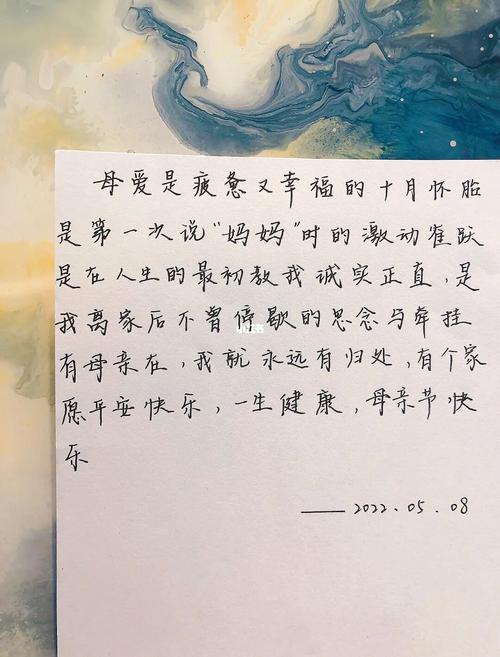 母爱是疲惫又幸福的十月怀胎
是第一次说“妈妈”时的激动雀跃
是在人生的最初教我诚实正直,是
我离家后不曾停歇的思念与牵挂
有母亲在,我就永远有归处,有个家
愿平安快乐,一生健康,母亲节快
乐
——2022.05.08